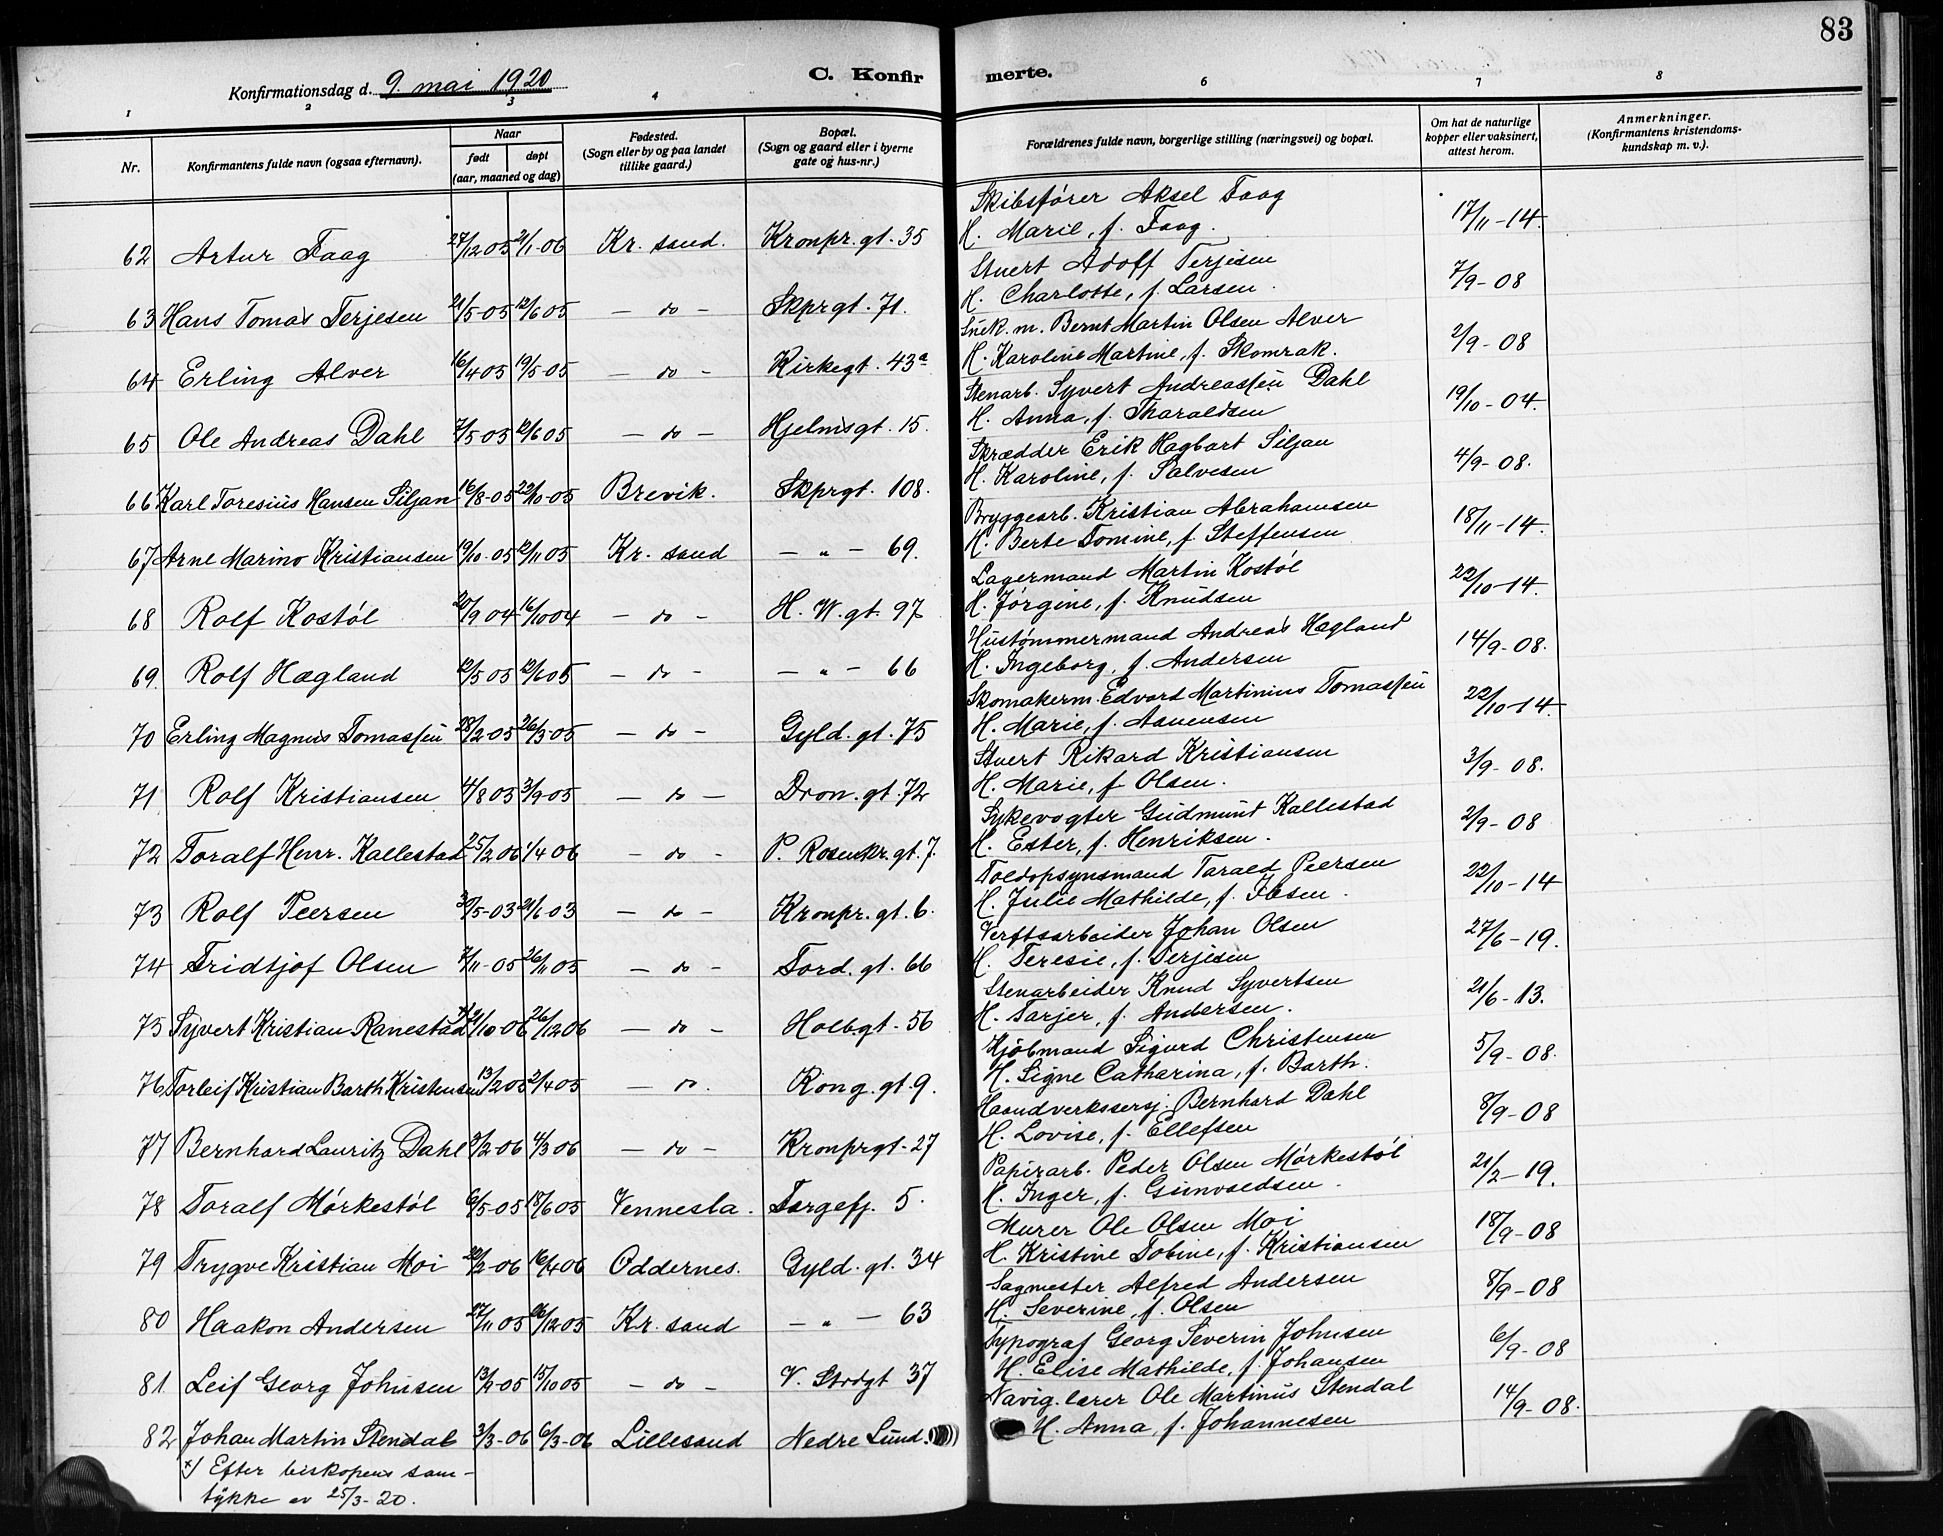 83
Konfirmationsdag d. 9. mai 1920
C. Konfirmerte.
1 2 3 4 6 7 8
Nr.
Konfirmantens fulde navn (ogsaa efternavn).
Naar
født døpt
(aar, maaned og dag)
Fødested.
(Sogn eller by og paa landet
tillike gaard.)
Bopæl.
(Sogn og gaard eller i byerne
gate og hus-nr.)
Forældrenes fulde navn, borgerlige stilling (næringsvei) og bopæl.
Om hat de naturlige
kopper eller vaksinert,
attest herom.
Anmerkninger.
(Konfirmantens kristendoms-
kundskap m. v.).
62 Artur Faag 27/12 05 21/1-06 Kr. sand. Kronpr. gt. 35
Skibsfører Aksel Faag
H. Marie, f. Faag. 17/11-14.
63 Hans Tomas Terjesen 21/5-05 12/6 05 — do — Skprgt. 71.
Stuert Adolf Terjesen
H. Charlotte, f. Larsen. 7/9-08
64 Erling Alver 16/4 05 19/5-05 — do — Kirkegt. 43a
Snek. m. Bernt Martin Olsen Alver
H. Karoline Martine, f. Skomrak. 2/9-08
65 Ole Andreas Dahl 7/5 05 12/6 05 — do — Hjelmsgt. 15.
Stenarb. Syvert Andreassen Dahl
H. Anna, f. Tharaldsen 19/10-04.
66 Karl Toresius Hansen Siljan 16/8-05 22/10-05 Brevik. Skprgt. 108.
Skrædder Erik Hagbart Siljan
H. Karoline, f. Salvesen 4/9-08.
67 Arne Marino Kristiansen 19/10-05 12/11 05 Kr. sand — " — 69.
Bryggearb. Kristian Abrahamsen
H. Berte Tomine, f. Steffensen 18/11-14.
68 Rolf Kostøl 20/9 04 16/10 04 — do — H. W. gt. 97
Lagermand Martin Kostøl
H. Jørgine, f. Knudsen 22/10-14.
69. Rolf Hægland 12/5 05 12/6 05 — do — — " — 66
Hustømmermand Andreas Hægland
H. Ingeborg, f. Andersen 14/9-08.
70 Erling Magnus Tomassen 28/2-05 26/3-05 — do — Gyld. gt. 75
Skomakerm. Edvard Martinius Tomassen
H. Marie, f. Aanensen 22/10-14.
71 Rolf Kristiansen 4/8 05 3/9-05 — do — Dron. gt. 72
Stuert Rikard Kristiansen
H. Marie, f Olsen. 3/9-08.
72 Toralf Henr. Kallestad 25/2 06 1/4 06 — do — P. Rosenkr. gt. 7.
Sykevogter Gudmund Kallestad
H. Ester, f. Henriksen. 2/9-08
73 Rolf Peersen 30/5-03 21/6-03 — do — Kronpr. gt. 6.
Toldopsynsmand Tarald Peersen
H. Julie Mathilde, f. Ibsen. 22/10-14
74 Fridtjof Olsen 7/11-05 26/11 05 — do — Tord. gt. 66
Verftsarbeider Johan Olsen
H. Teresie, f. Terjesen 27/6-19.
75 Syvert Kristian Ranestad x) 21/10-06 26/12 06 — do — Holbgt. 56
Stenarbeider Knud Syvertsen
H. Tarjer, f. Andersen. 21/6-13.
76 Torleif Kristian Barth Kristensen 13/2 05 2/4 05 — do. Kong. gt. 9.
Kjøbmand Sigurd Christensen
H. Signe Catharina, f. Barth. 5/9-08.
77 Bernhard Lauritz Dahl 9/2-06 4/3 06 — do — Kronprgt. 27
Haandverkssersj. Bernhard Dahl
H. Lovise, f. Ellefsen 8/9-08
78 Toralf Mørkestøl 6/5-05 18/6 05 Vennesla. Torgefj. 5.
Papirarb. Peder Olsen Mørkestøl
H. Inger, f. Gunvaldsen. 21/2-19.
79 Trygve Kristian Moi 20/2-06 16/4 06 Oddernes. Gyld. gt. 34
Murer Ole Olsen Moi
H. Kristine Tobine, f. Kristiansen 18/9-08
80 Haakon Andersen 27/11 05 26/12 05 Kr. sand — " — 63
Sagmester Alfred Andersen
H. Severine, f. Olsen 8/9-08
81. Leif Georg Johnsen 13/9-05 15/10 05 — do — V. Strdgt 37
Typograf Georg Severin Johnsen
H. Elise Mathilde, f. Johansen 6/9-08
82 Johan Martin Stendal 3/3-06 6/3-06 Lillesand Nedre Lund.
Navig. lærer Ole Martinus Stendal
H. Anna, f. Johannesen 14/9-08.
x) Efter biskopens sam-
tykke av 25/3-20.